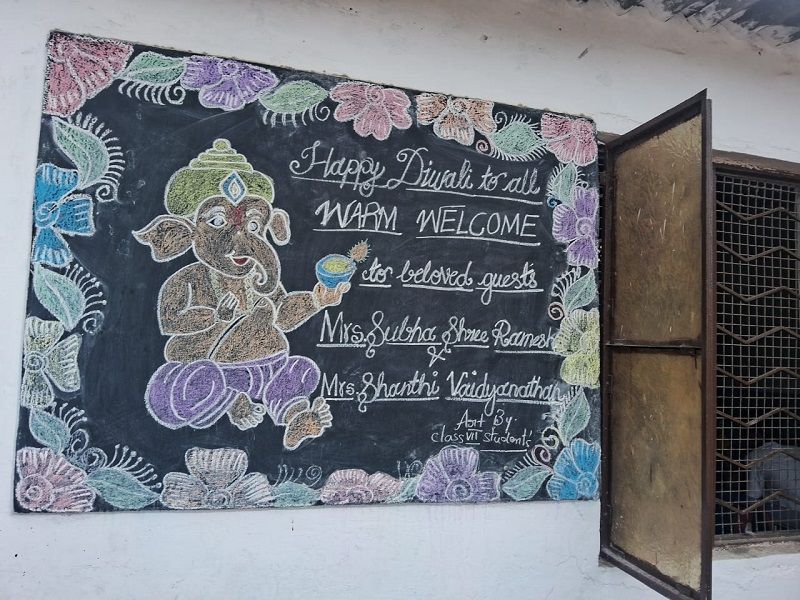 Happy Diwali to all
WARM WELCOME
to beloved guests
Mrs. Subha Shree Ramesh
&
Mrs. Shanthi Vaidyanathan
Art By
class VII student's